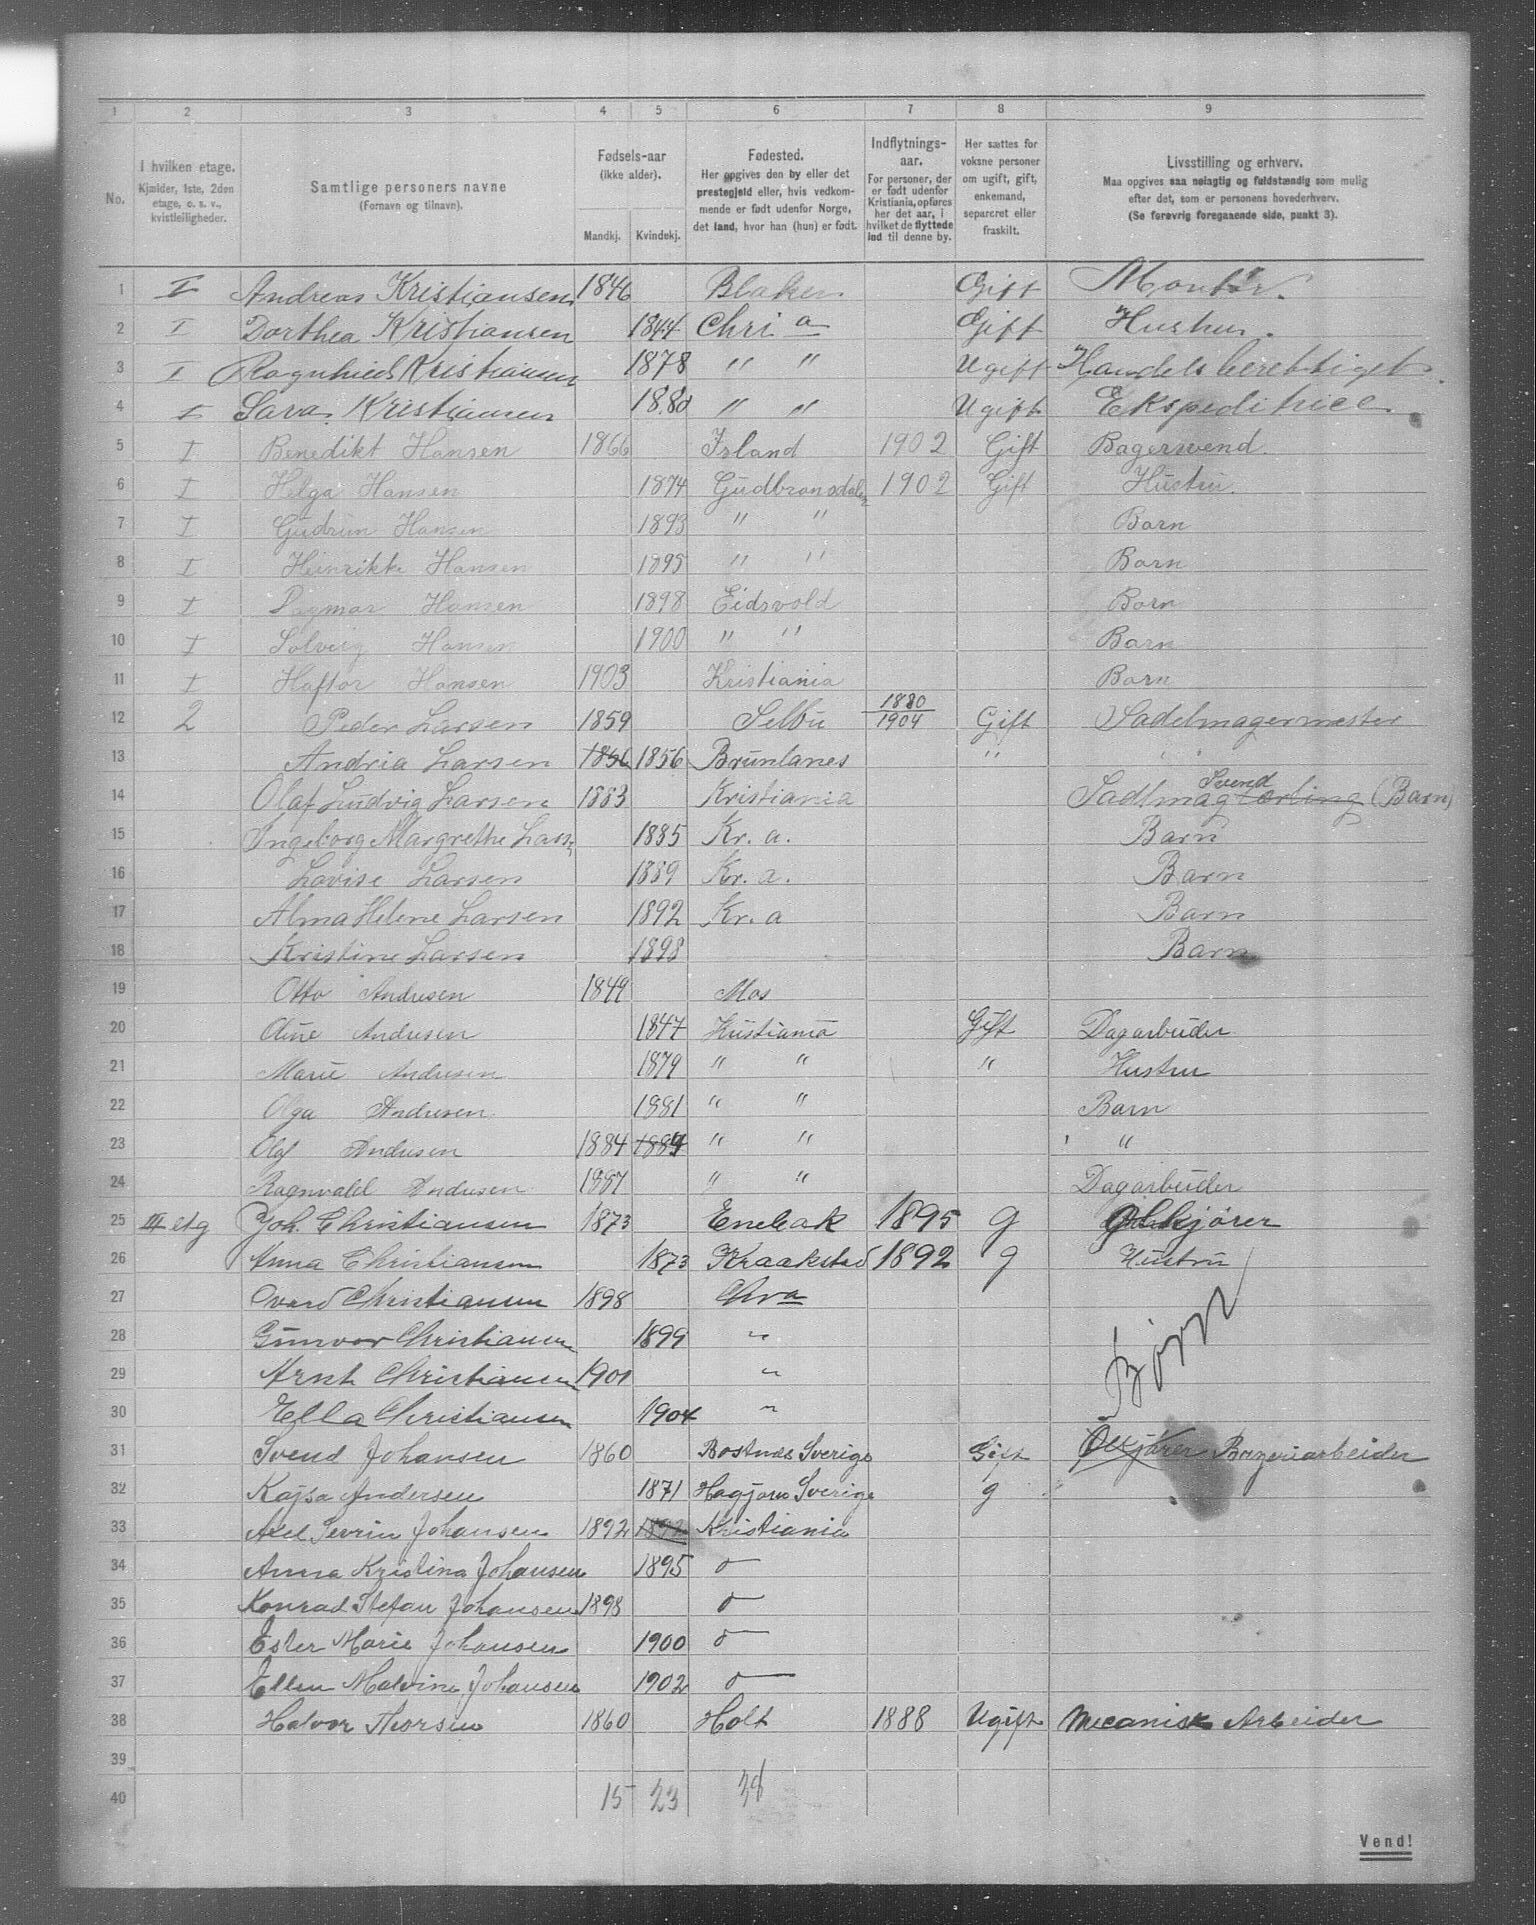 1 2 3 4 5 6 7 8 9
No.
I hvilken etage.
Kjælder, 1ste, 2den etage, o. s. v., kvistleiligheder.
Samtlige personers navne
(Fornavn og tilnavn).
Fødsels-aar
(ikke alder).
Mandkj. Kvindekj.
Fødested.
Her opgives den by eller det prestegjeld eller, hvis vedkommende er født udenfor Norge, det land, hvor han (hun) er født.
Indflytnings-aar.
For personer, der er født udenfor Kristiania, opføres her det aar, i hvilket de flyttede ind til denne by.
Her sættes for voksne personer om ugift, gift, enkemand, separeret eller fraskilt.
Livsstilling og erhverv.
Maa opgives saa nøiagtig og fuldstændig som mulig efter det, som er personens hovederhverv.
(Se forøvrig foregaaende side, punkt 3).
1 I Andreas Kristiansen 1846 Blaker Gift Montør.
2 I Dorthea Kristiansen 1844 Chri a Gift Hustru.
3 I Ragnhied Kristiansen 1878 " " Ugift Handelsberettiget.
4 I Sara Kristiansen 1880 " " Ugift Ekspeditrice.
5 I Benedikt Hansen 1866 Island 1902 Gift Bagersvend.
6 I Helga Hansen 1874 Gudbransdalen 1902 Gift Hustru.
7 I Gudrun Hansen 1893 " " Barn
8 I Heinrikke Hansen 1895 " " Barn
9 I Dagmar Hansen 1898 Eidsvold Barn
10 I Solveig Hansen 1900 " " Barn
11 I Haftor Hansen 1903 Kristiania Barn
12 2 Peder Larsen 1859 Selbu 1880/1904 Gift Sadelmagermester
13 Andria Larsen 1856 1856 Brunlanes " " "
14 Olaf Ludvig Larsen 1883 Kristiania Sadlmag Svend lærling (Barn)
15 Ingeborg Margrethe Larsn 1885 Kr. a. Barn
16 Lovise Larsen 1889 Kr. a. Barn
17 Alma Helene Larsen 1892 Kr. a Barn
18 Kristine Larsen 1898 Barn
19 Otto Andresen 1849 Mos
20 Oline Andresen 1847 Kristiania Gift Dagarbeider
21 Marie Andresen 1879 " " " Hustru
22 Olga Andresen 1881 " " Barn
23 Olaf Andresen 1884 1884 " " " "
24 Ragnvald Andresen 1887 " " Dagarbeider
25 III etg Joh. Christiansen 1873 Enebak 1895 g Ølkjører
26 Anna Christiansen 1873 Kraakstad 1892 g Hustru
27 Christiansen 1898 Chra
28 Gunvor Christiansen 1899 "
29 Arnt Christiansen 1901 "
30 Ella Christiansen 1904 "
Børn
31 Svend Johansen 1860 Bostnäs Sverige Gift Ølkjører Bageriarbeider
32 Kajsa Andersen 1871 Sverige g "
33 Axel Sevrin Johansen 1892 1892 Kristiania
34 Anna Kristina Johansen 1895 o
35 Konrad Stefan Johansen 1898 o
36 Ester Marie Johansen 1900 o
37 Ellen Malvine Johansen 1902 o
38 Halvor Thorsen 1860 Holt 1888 Ugift Mecanisk Arbeider
39
40 15 23 38
Vend!